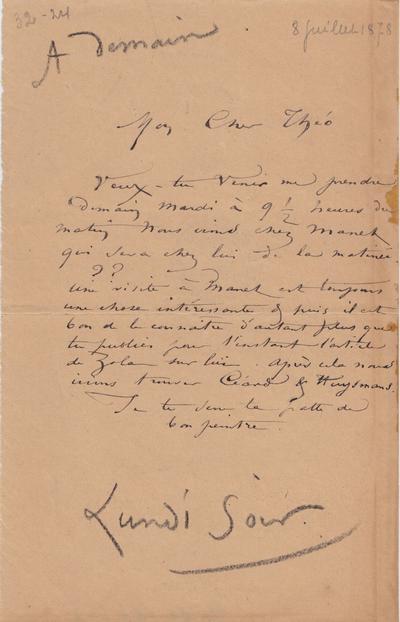 32-24
8 juillet 1878
A Demain
Mon Cher Théo
Veux-tu venir me prendre
Demain Mardi à 9 1/2 heures du
matin Nous irons chez Manet
qui sera chez lui de la matinée.
??
une visite à Manet est toujours
une chose intéressante & puis il est
bon de le connaître d'autant plus que
tu publies pour l'instant l'article
de Zola sur lui. Après cela nous
irons trouver Céard & Huysmans.
Je te serre la patte de
bon peintre.
Lundi Soir.